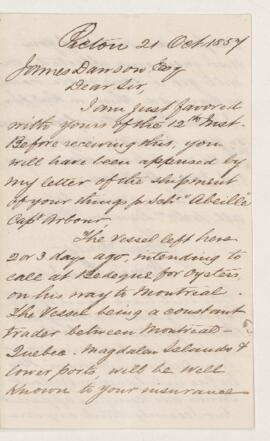 Pictou 21 Oct 1857
James Dawson Esq
Dear Sir,
I am just favored
with yours of the 12th Inst.
Before receiving this, you
will have been apprised by
my letter of the shipment
of your things pr Schr "Abeille"
Capt Arbour.
The Vessel left here
2 or 3 days ago, intending to
call at Bedeque for Oysters
on his way to Montreal.
The Vessel being a constant
trader between Montreal -
Quebec - Magdalen Islands &
lower ports, will be well
known to your insurance